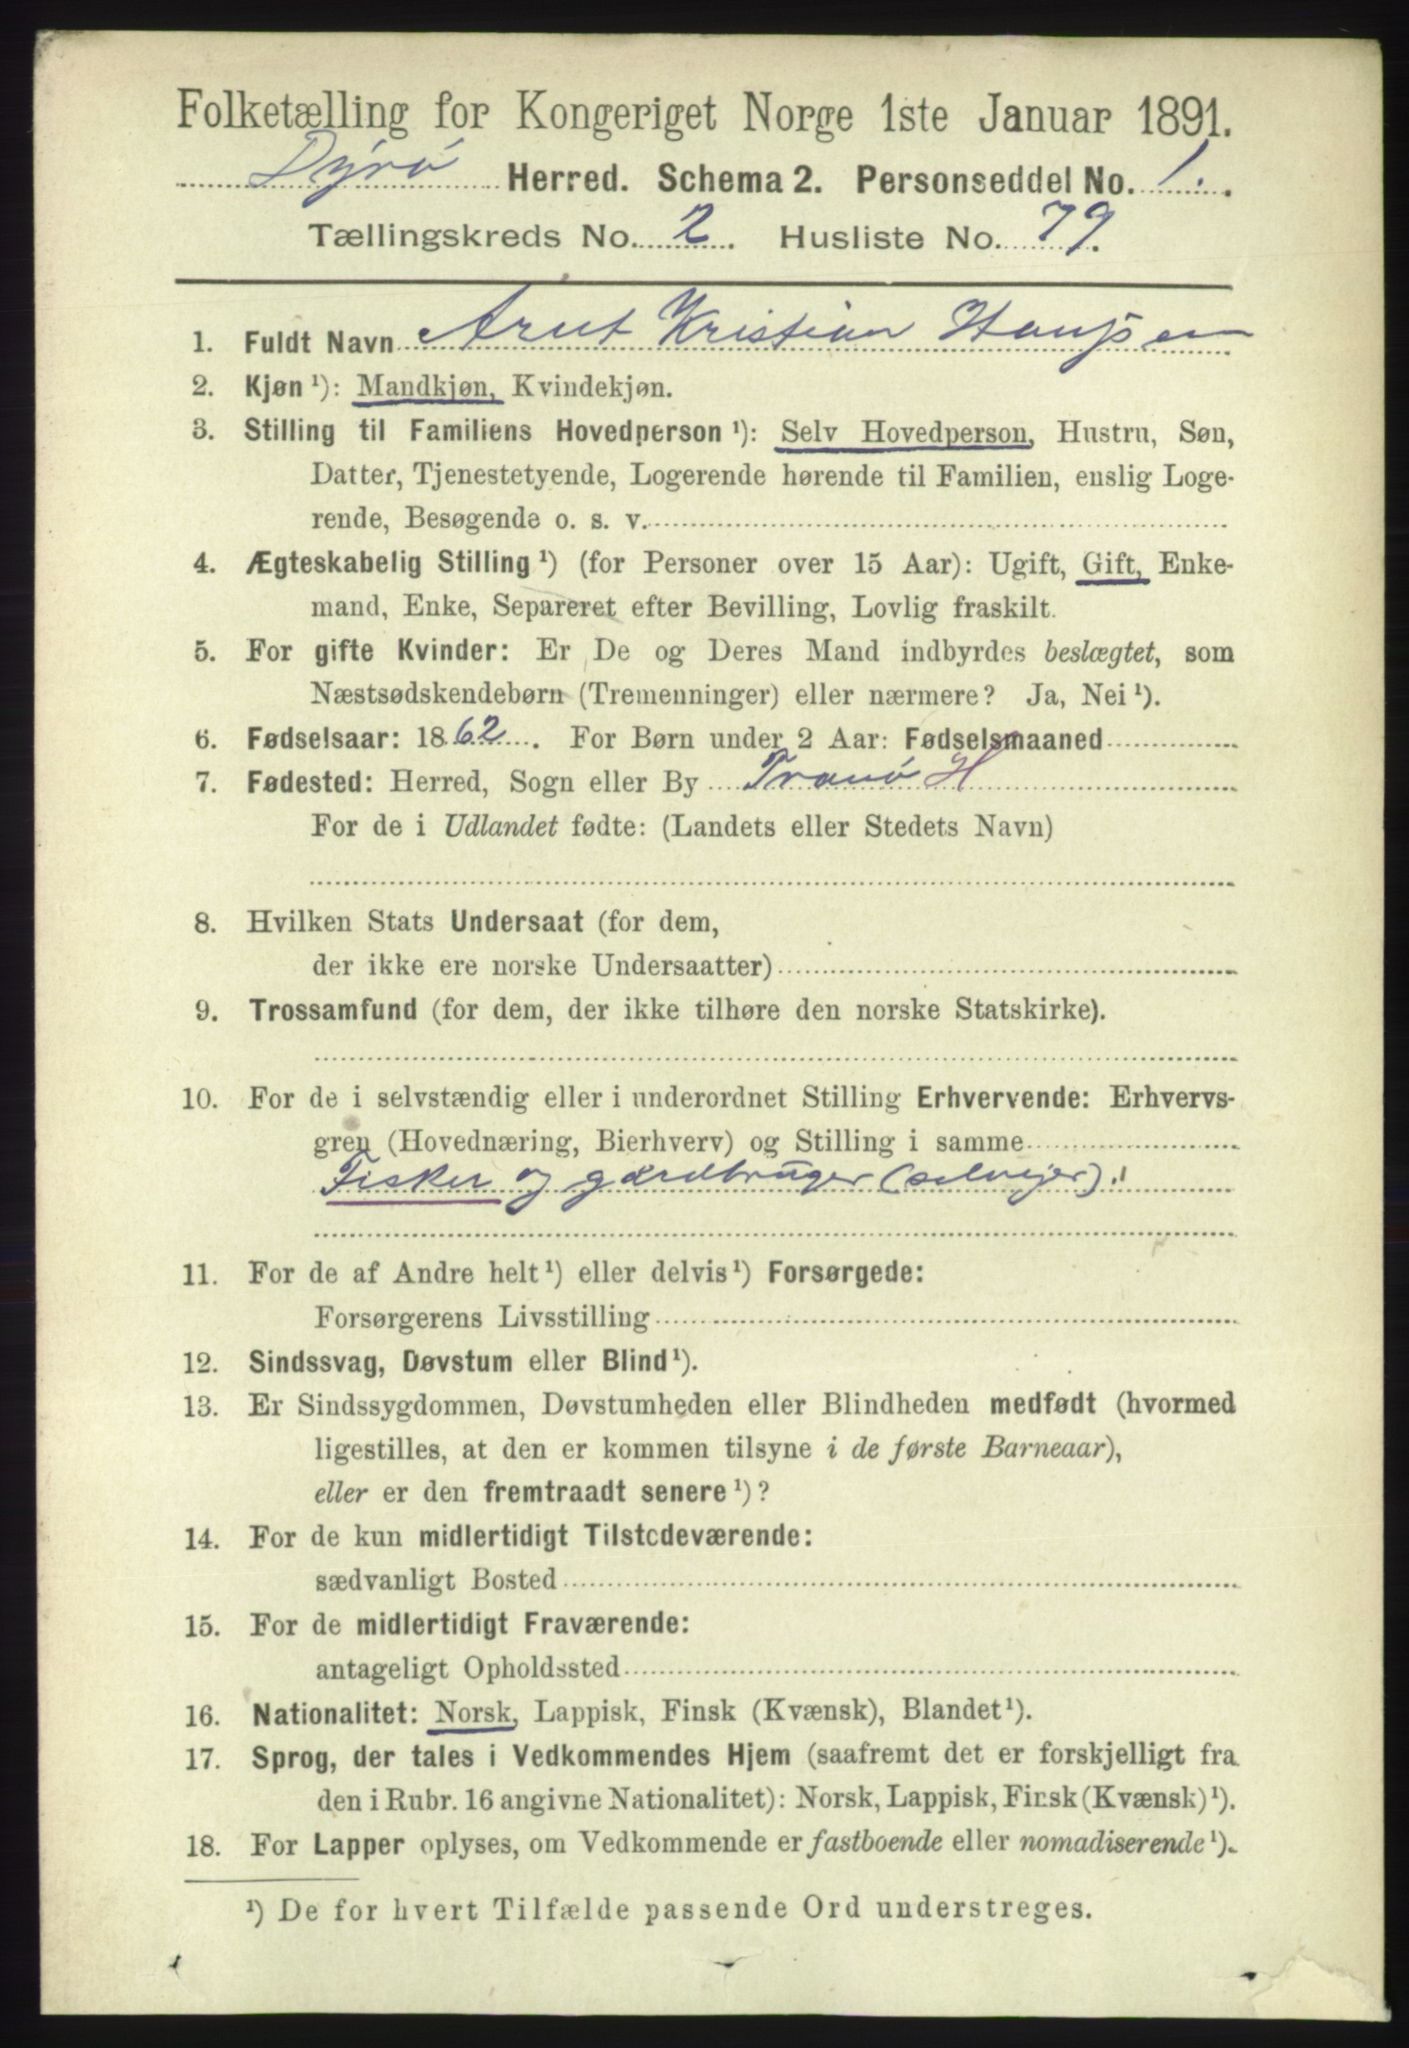 Folketælling for Kongeriget Norge 1ste Januar 1891.
Dyrø Herred. Schema 2. Personseddel No. 1.
Tællingskreds No. 2. Husliste No. 79.
1. Fuldt Navn Arnt Kristian Hansen
2. Kjøn ¹): Mandkjøn, Kvindekjøn.
3. Stilling til Familiens Hovedperson ¹): Selv Hovedperson, Hustru, Søn,
Datter, Tjenestetyende, Logerende hørende til Familien, enslig Loge-
rende, Besøgende o. s. v.
4. Ægteskabelig Stilling ¹) (for Personer over 15 Aar): Ugift, Gift, Enke-
mand, Enke, Separeret efter Bevilling, Lovlig fraskilt.
5. For gifte Kvinder: Er De og Deres Mand indbyrdes beslægtet, som
Næstsødskendebørn (Tremenninger) eller nærmere? Ja, Nei ¹).
6. Fødselsaar: 1862. For Børn under 2 Aar: Fødselsmaaned
7. Fødested: Herred, Sogn eller By Tranø H
For de i Udlandet fødte: (Landets eller Stedets Navn)
8. Hvilken Stats Undersaat (for dem,
der ikke ere norske Undersaatter)
9. Trossamfund (for dem, der ikke tilhøre den norske Statskirke).
10. For de i selvstændig eller i underordnet Stilling Erhvervende: Erhvervs-
gren (Hovednæring, Bierhverv) og Stilling i samme
Fisker og gardbruger (selveier).
11. For de af Andre helt ¹) eller delvis ¹) Forsørgede:
Forsørgerens Livsstilling
12. Sindssvag, Døvstum eller Blind ¹).
13. Er Sindssygdommen, Døvstumheden eller Blindheden medfødt (hvormed
ligestilles, at den er kommen tilsyne i de første Barneaar),
eller er den fremtraadt senere ¹)?
14. For de kun midlertidigt Tilstedeværende:
sædvanligt Bosted
15. For de midlertidigt Fraværende:
antageligt Opholdssted
16. Nationalitet: Norsk, Lappisk, Finsk (Kvænsk), Blandet ¹).
17. Sprog, der tales i Vedkommendes Hjem (saafremt det er forskjelligt fra
den i Rubr. 16 angivne Nationalitet): Norsk, Lappisk, Finsk (Kvænsk) ¹).
18. For Lapper oplyses, om Vedkommende er fastboende eller nomadiserende ¹).
¹) De for hvert Tilfælde passende Ord understreges.